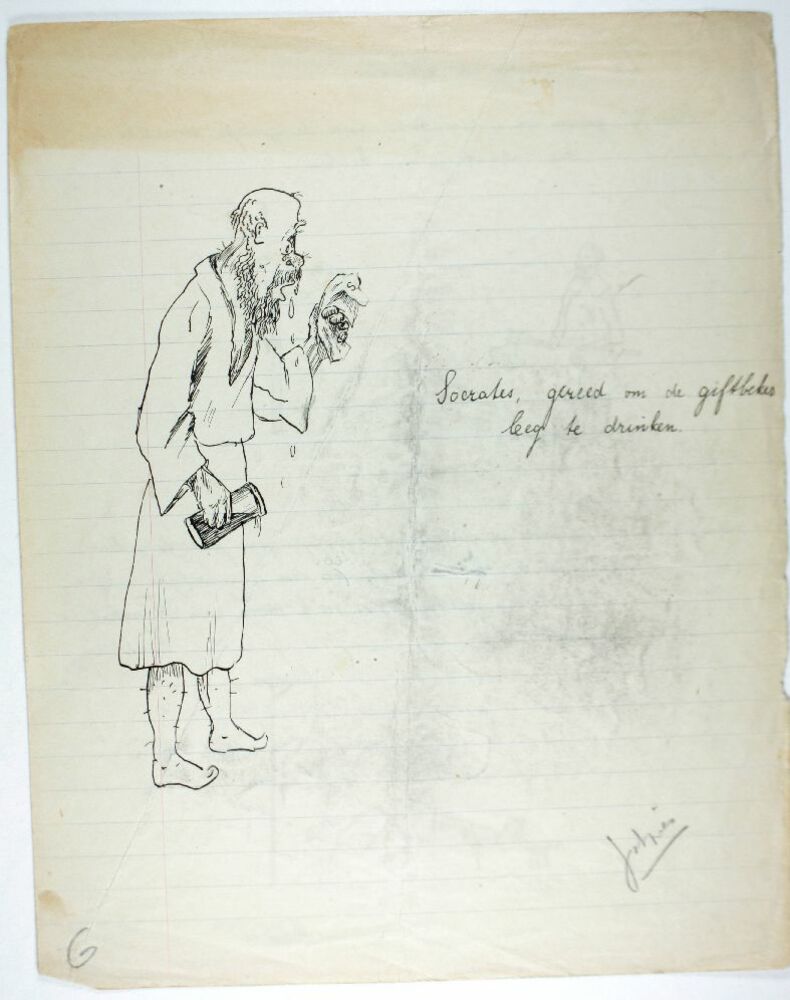 Socrates, gereed om de giftbeker
leeg te drinken.
6